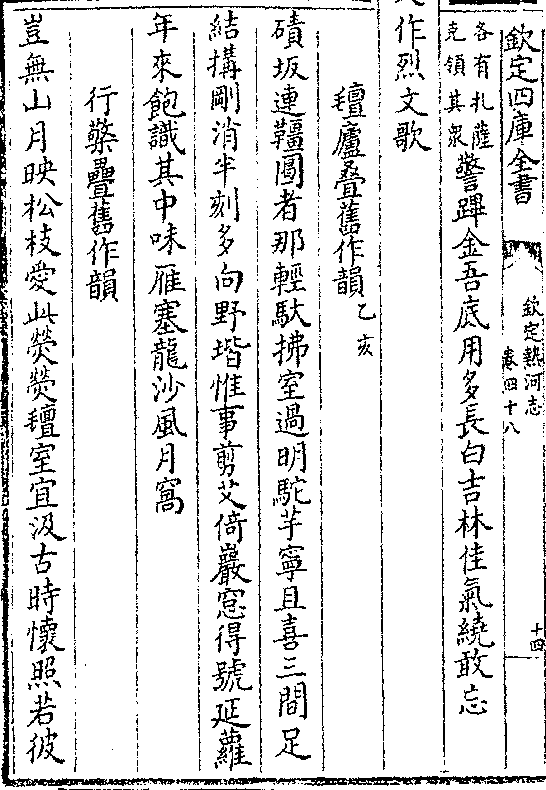 欽定四庫全書
欽定熱河志
卷四十八
十四
各有扎薩
克領其衆
警蹕金吾底用多長白吉林佳氣繞敢忘
作烈文歌
氊廬叠舊作韻乙亥
磧坂連韁圉者那輕馱拂室過明駝芋寧且喜三間足
結搆剛消半刻多向野堦惟事剪艾倚巖窓得號延蘿
年來飽識其中味雁塞龍沙風月窩
行藥疊舊作韻
豈無山月映松枝愛此熒熒氊室宜汲古時懷照若彼